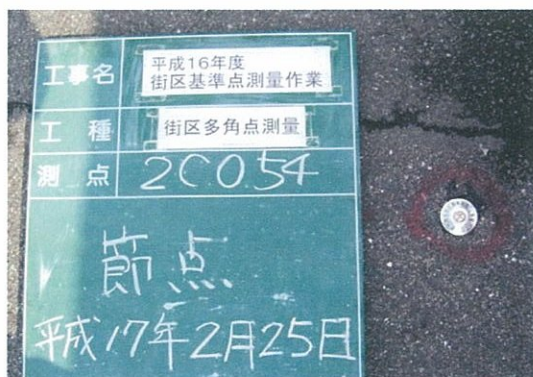 工事名 平成16年度
街区基準点測量作業
工種 街区多角点測量
測点 2C054
節点
平成17年2月25日